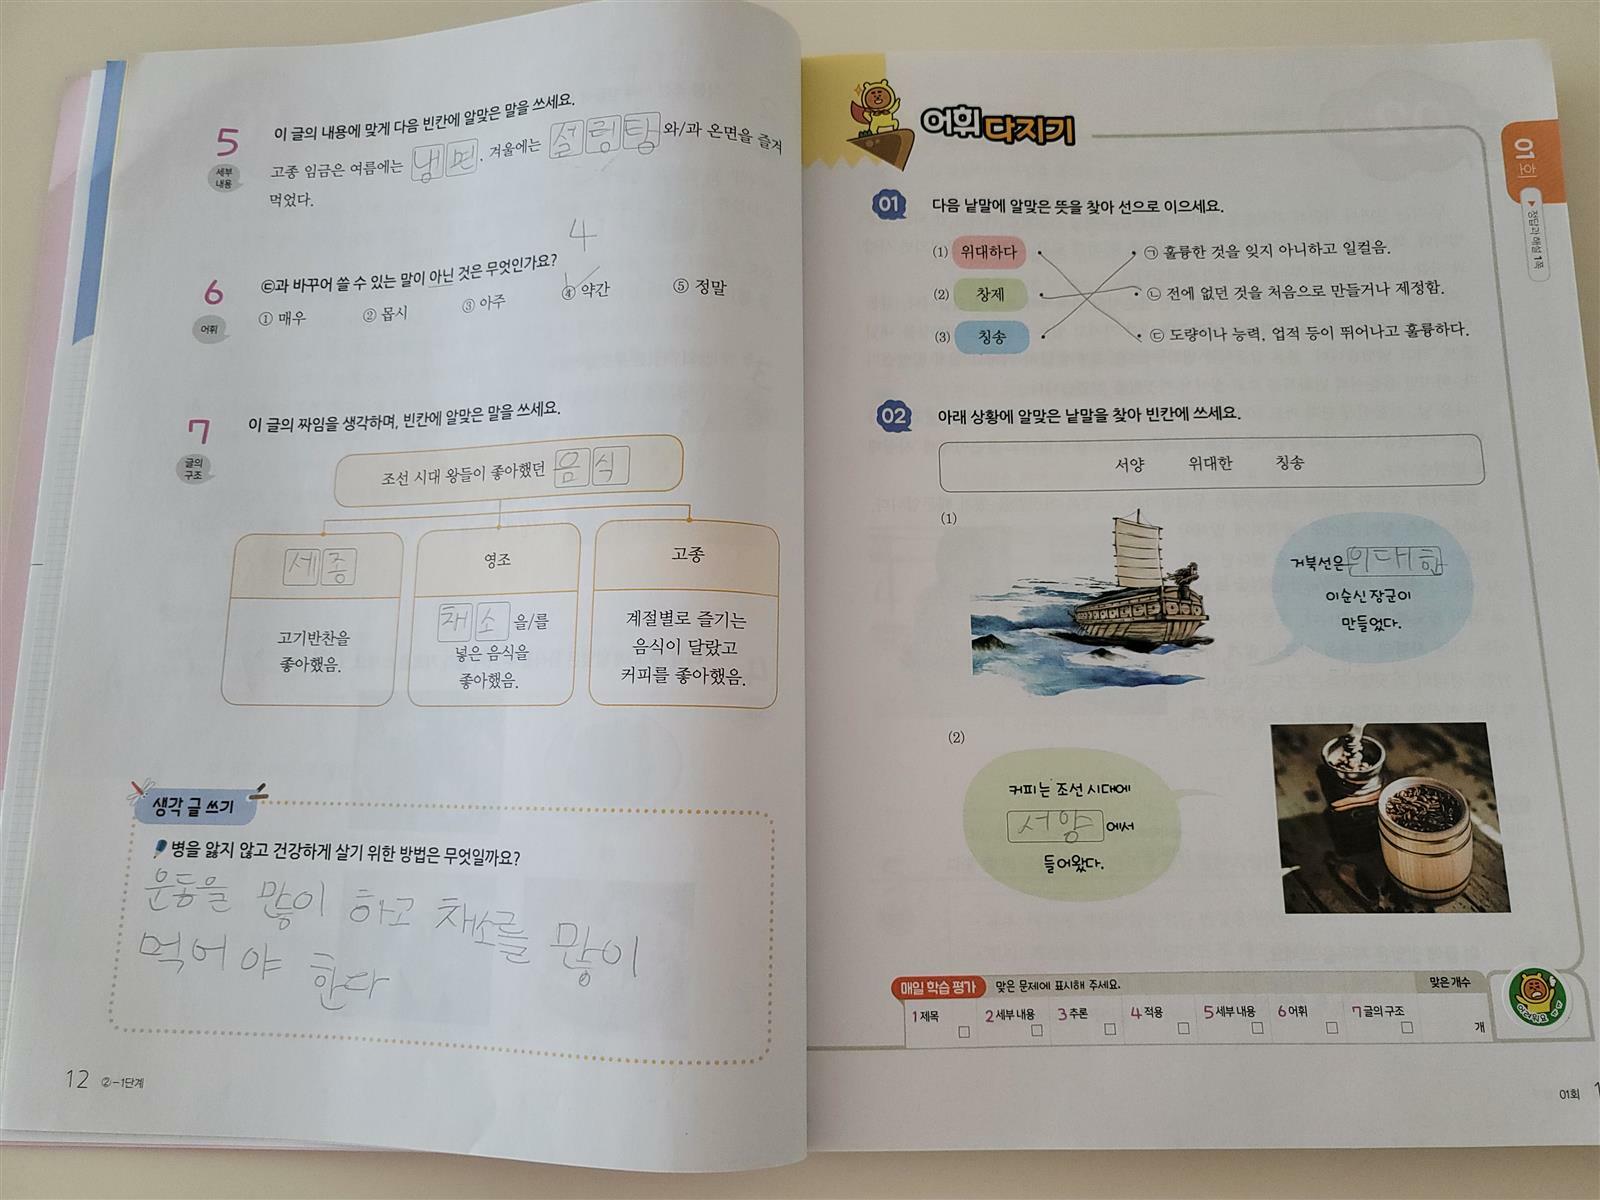 5
세부
내용
이 글의 내용에 맞게 다음 빈칸에 알맞은 말을 쓰세요.
고종 임금은 여름에는 냉면, 겨울에는 설렁탕 와/과 온면을 즐겨
먹었다.
4
6
어휘
㉢과 바꾸어 쓸 수 있는 말이 아닌 것은 무엇인가요?
① 매우 ② 몹시 ③ 아주 ④ 약간 ⑤ 정말
7
글의
구조
이 글의 짜임을 생각하며, 빈칸에 알맞은 말을 쓰세요.
조선 시대 왕들이 좋아했던 음식
세종
고기반찬을
좋아했음.
영조
채소 을/를
넣은 음식을
좋아했음.
고종
계절별로 즐기는
음식이 달랐고
커피를 좋아했음.
생각 글 쓰기
병을 앓지 않고 건강하게 살기 위한 방법은 무엇일까요?
운동을 많이 하고 채소를 많이
먹어야 한다
12 ②-1단계
어휘 다지기
01회
▶ 정답과 해설 1쪽
01 다음 낱말에 알맞은 뜻을 찾아 선으로 이으세요.
(1) 위대하다 ㉠ 훌륭한 것을 잊지 아니하고 일컬음.
(2) 창제 ㉡ 전에 없던 것을 처음으로 만들거나 제정함.
(3) 칭송 ㉢ 도량이나 능력, 업적 등이 뛰어나고 훌륭하다.
02 아래 상황에 알맞은 낱말을 찾아 빈칸에 쓰세요.
서양 위대한 칭송
(1)
거북선은 위대한
이순신 장군이
만들었다.
(2)
커피는 조선 시대에
서양 에서
들어왔다.
매일 학습 평가 맞은 문제에 표시해 주세요. 맞은 개수
1 제목 2 세부 내용 3 추론 4 적용 5 세부 내용 6 어휘 7 글의 구조 개
어려워요
01회